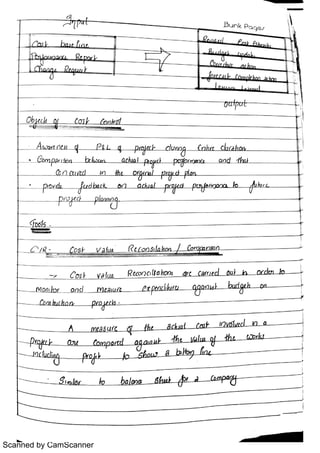 Input
Burk Pages
Cost base line
Performance Report
Change Request
Revised Cost Estimate
Budget update
Corrective action
forecast Completion action
Lesson learned
output
Objects of cost Control
Awareness of P&L of project during Entire duration
• Comparison between actual project performance and that
conceived in the original project plan
• provide feedback on actual project performance to future
project planning
Tools.
CVR - Cost Value Reconsilation / Comparison
→ Cost value Reconcilations are carried out in order to
Monitor and measure expenditure against budget on
Construction projects.
A measure of the actual cost involved in a
project are compared against the value of the works
including profit to show a bottom line
Similar to balance sheet for a Company
Scanned by CamScanner